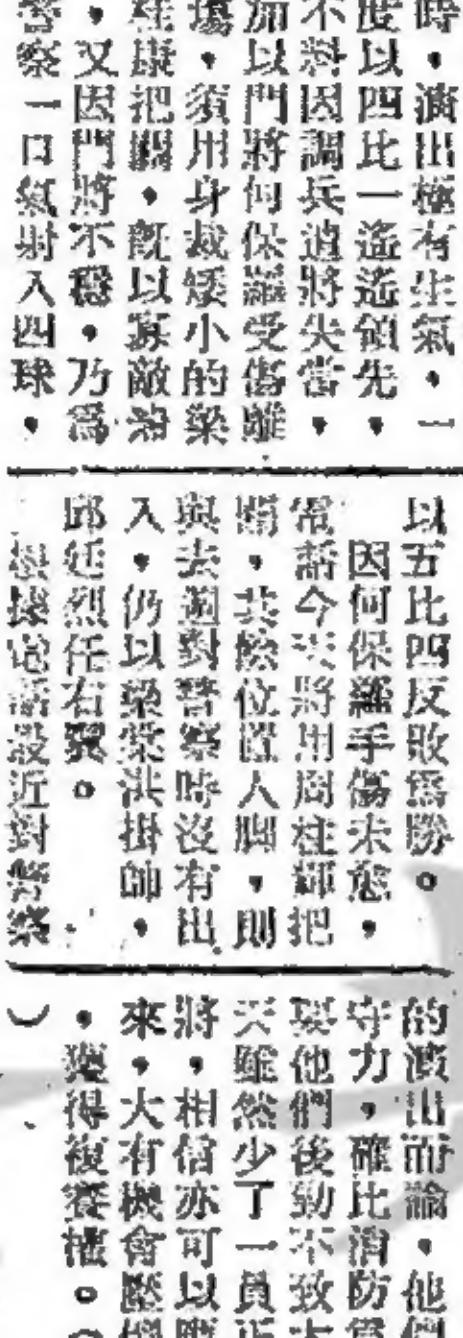 時，演出極有生氣，一
度以四比一遙遙領先，
不料因調兵遣將失當，
以門將何保羅受傷離
場，須用身裁矮小的梁
桂康把關，旣以寡敵
，又因門將不穩，乃爲
警察一口氣射入四球，
以五比四反敗爲勝。
因何保羅手傷未愈，
電話今天將用周柱輝把
關，其餘位置人脚，則
與去週對警察時沒有出
入，仍以梁榮洪掛帥，
邱廷烈任右翼。
電話最近對警察
的演出而論，他們
守力，確比消防
他們後勁不致
天雖然少了一員正
將，相信亦可以
來，大有機會壓
，獲得複賽權。
）